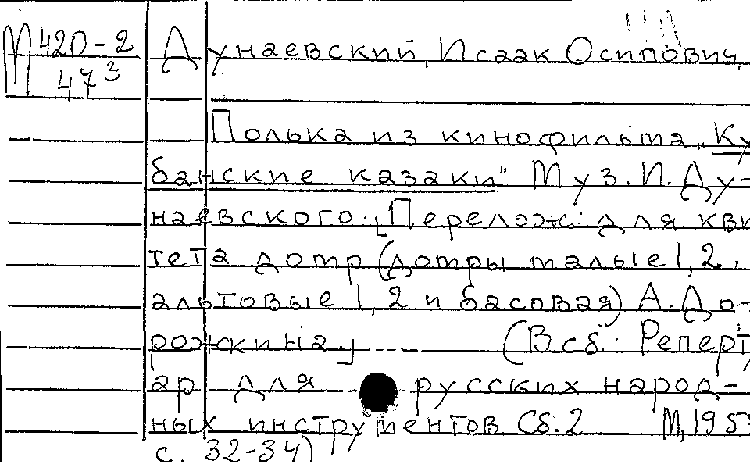 М 420-2
473
Дунаевский, Исаак Осипович.
Полька из кинофильма „Ку-
банские казаки" Муз. И. Ду-
наевского. [Перелож. для кви
тета домр (домры малые 1, 2,
альтовые 1, 2 и басовая) А. До-
рожкина] --- (В сб: Реперту
ар для русских народ-
ных инструментов Сб. 2 М, 195
с. 32-34)